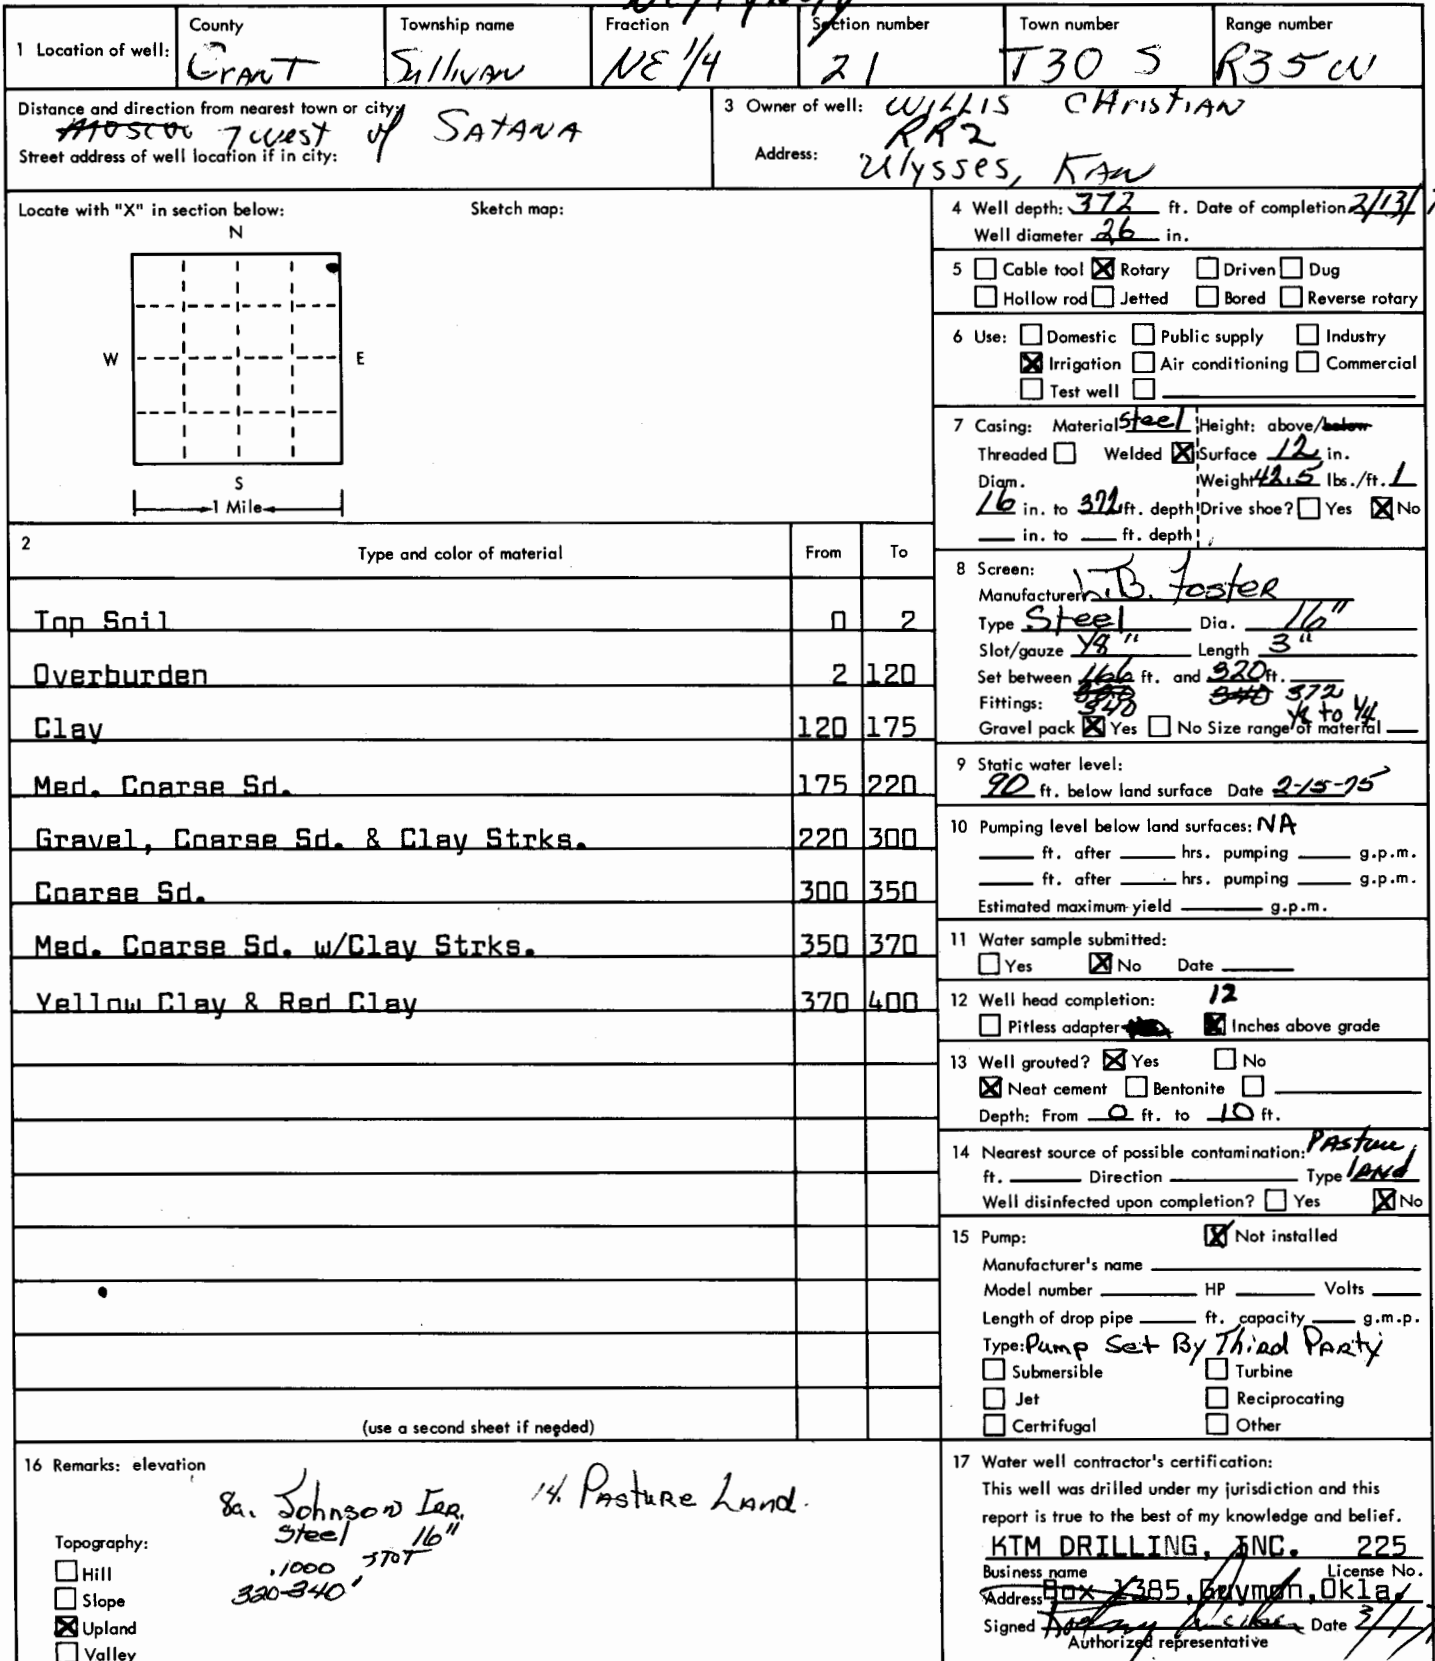 County Township name Fraction Section number Town number Range number
1 Location of well: Grant Sullivan NE 1/4 21 T30 S R35W
Distance and direction from nearest town or city:
7 west of SATANA
Street address of well location if in city:
3 Owner of well: WILLIS CHristiAN
RR2
Address: Ulysses, KAN
Locate with "X" in section below: Sketch map:
N
W E
S
1 Mile
2 Type and color of material From To
Top Soil 0 2
Overburden 2 120
Clay 120 175
Med. Coarse Sd. 175 220
Gravel, Coarse Sd. & Clay Strks. 220 300
Coarse Sd. 300 350
Med. Coarse Sd. w/Clay Strks. 350 370
Yellow Clay & Red Clay 370 400
(use a second sheet if needed)
4 Well depth: 372 ft. Date of completion 2/13/
Well diameter 26 in.
5 Cable tool Rotary Driven Dug
Hollow rod Jetted Bored Reverse rotary
6 Use: Domestic Public supply Industry
Irrigation Air conditioning Commercial
Test well
7 Casing: Material Steel Height: above/below
Threaded Welded Surface 12 in.
Diam. Weight 42.5 lbs./ft.
16 in. to 372 ft. depth Drive shoe? Yes No
in. to ft. depth
8 Screen:
Manufacturer L.B. Foster
Type Steel Dia. 16"
Slot/gauze 1/8" Length 3"
Set between 166 ft. and 320 ft.
Fittings: 340 372
1/8 to 1/4
Gravel pack Yes No Size range of material
9 Static water level:
90 ft. below land surface Date 2-15-75
10 Pumping level below land surfaces: NA
ft. after hrs. pumping g.p.m.
ft. after hrs. pumping g.p.m.
Estimated maximum yield g.p.m.
11 Water sample submitted:
Yes No Date
12 Well head completion: 12
Pitless adapter Inches above grade
13 Well grouted? Yes No
Neat cement Bentonite
Depth: From 0 ft. to 10 ft.
14 Nearest source of possible contamination: PAsture
ft. Direction Type lAnd
Well disinfected upon completion? Yes No
15 Pump: Not installed
Manufacturer's name
Model number HP Volts
Length of drop pipe ft. capacity g.m.p.
Type: Pump Set By Third Party
Submersible Turbine
Jet Reciprocating
Certrifugal Other
16 Remarks: elevation
8a. Johnson Irr. 14. Pasture Land.
Steel 16"
.1000 STOT
320-340'
Topography:
Hill
Slope
Upland
Valley
17 Water well contractor's certification:
This well was drilled under my jurisdiction and this
report is true to the best of my knowledge and belief.
KTM DRILLING, INC. 225
Business name License No.
Address Box 1385, Guymon, Okla.
Signed Date 3/1/
Authorized representative